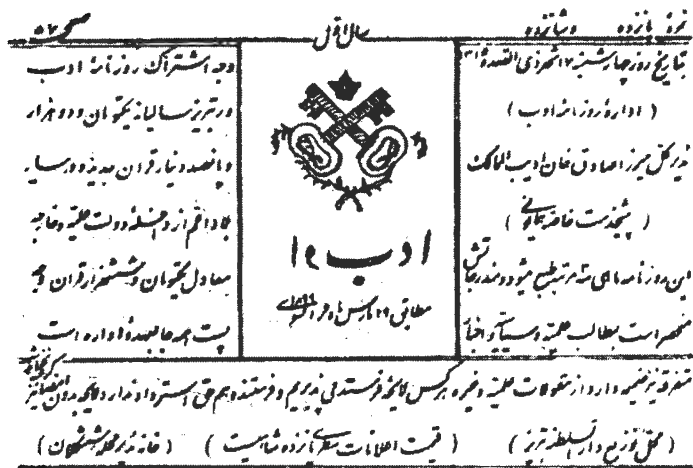 نمره پانزده و شانزده
سال اول
صحـ ۵۷
بتاریخ روز چهارشنبه ۱۷ شهر ذی القعده
(اداره روزنامه ادب)
مدیر کل میرزا صادق خان ادیب الممالک
(پیشخدمت خاصه همایونی)
این روزنامه ماهی سه مرتبه طبع میشود و مندرجاتش
منحصر است بمطالب علمیه و سیاسیه و اخبار
ادب
مطابق ۲۹ مارس ماه فرانسه
وجه اشتراک روزنامه ادب
در تبریز سالیانه یکتومان و دو هزار
و پانصد دینار قران جدید و در سایر
بلاد اعم از داخله دولت علیه و خارجه
معادل یکتومان و ششهزار قران وجه
پست همه جا بعهده اداره است
متفرقه نیز ضمیمه دارد از مقولات علمیه و غیره هر کس لایحه فرستد می پذیریم و فرستنده هم حق استرداد ندارد لایحه بدون امضا نیز
(محل توزیع دار السلطنه تبریز) (قیمت اعلانات سطری پانزده شاهیست) (خانه مدیر محله ششکلان)